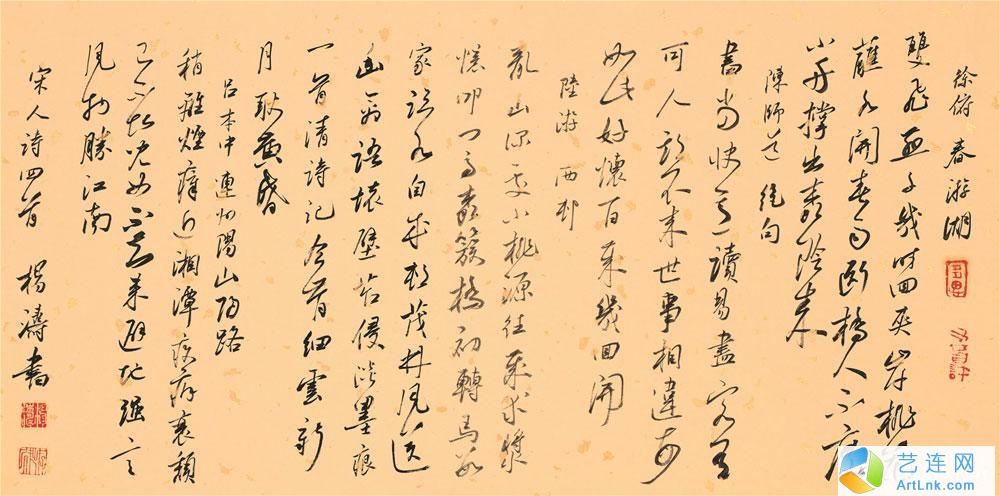 徐俯 春游湖
雙飛燕子幾時回夾岸桃花
蘸水開春雨斷橋人不度
小舟撐出柳陰來
陳師道 絕句
書當快意讀易盡客有
可人期不來世事相違每
如此好懷百歲幾回開
陸游 西邨
亂山深處小桃源往歲求漿
憶叩門高柳簇橋初轉馬數
家臨水自成村茂林風送
幽禽語壞壁苔侵醉墨痕
一首清詩記今宵細雲新
月耿黃昏
呂本中 連州陽山歸路
稍離煙瘴近湘潭疾病衰頹
已不堪兒女不知來避地強言
風物勝江南
宋人詩四首 楊濤書
艺连网
ArtLnk.com